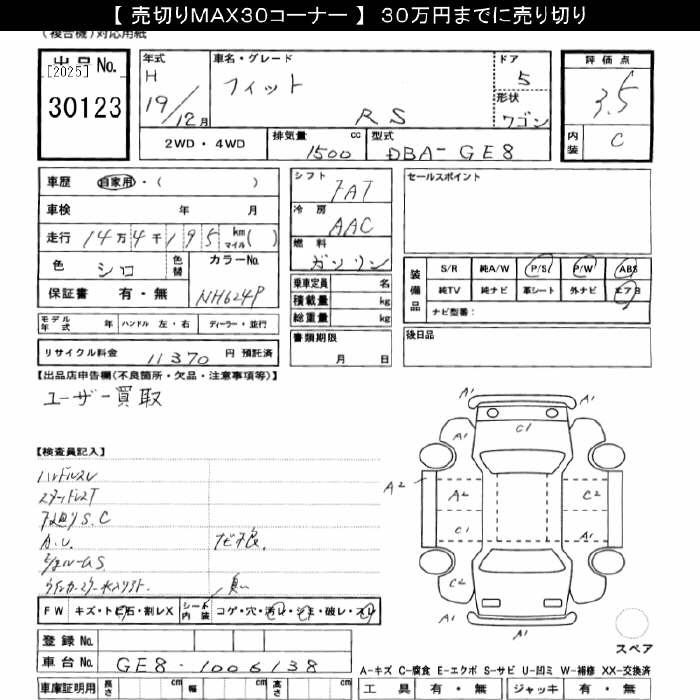 【 売切りMAX30コーナー 】 30万円までに売り切り
(複合機)対応用紙
出品No.
[2025]
30123
年式
H
19/12月
車名・グレード
フィット
RS
ドア
5
形状
ワゴン
評価点
3.5
内装
C
2WD・4WD
排気量 cc
1500
型式
DBA-GE8
車歴 自家用・( )
車検 年 月
走行 14万4千195 km マイル( )
色 シロ
色替
カラーNo.
NH624P
保証書 有・無
シフト
7AT
冷房
AAC
燃料
ガソリン
乗車定員 名
積載量 kg
総重量 kg
書類期限
月 日
セールスポイント
装備品
S/R 純A/W P/S P/W ABS
純TV 純ナビ 革シート 外ナビ エアB
ナビ型番:
後日品
モデル年式 年 ハンドル 左・右 ディーラー・並行
リサイクル料金 11370 円 預託済
【出品店申告欄(不良箇所・欠品・注意事項等)】
ユーザー買取
【検査員記入】
ハンドルスレ
S.C
A.U.
FW キズ・トビ石・割レX
シート内装 コゲ・穴・汚レ・シミ・破レ・スレ
A1 A1
C1
A1 A1
A2 A2 C2
C1 A1
C2
A1
スペア
登録No.
車台No. GE8-1006138
A-キズ C-腐食 E-エクボ S-サビ U-凹ミ W-補修 XX-交換済
車庫証明用 長さ cm 幅 cm 高さ cm
工具 有・無 ジャッキ 有・無